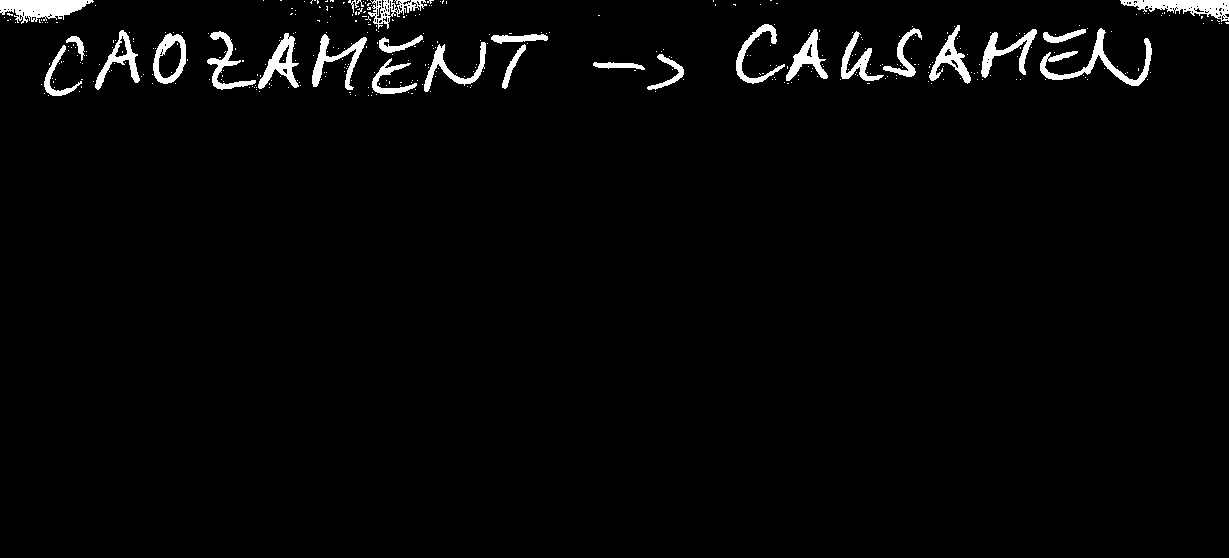 CAOZAMENT -> CAUSAMEN